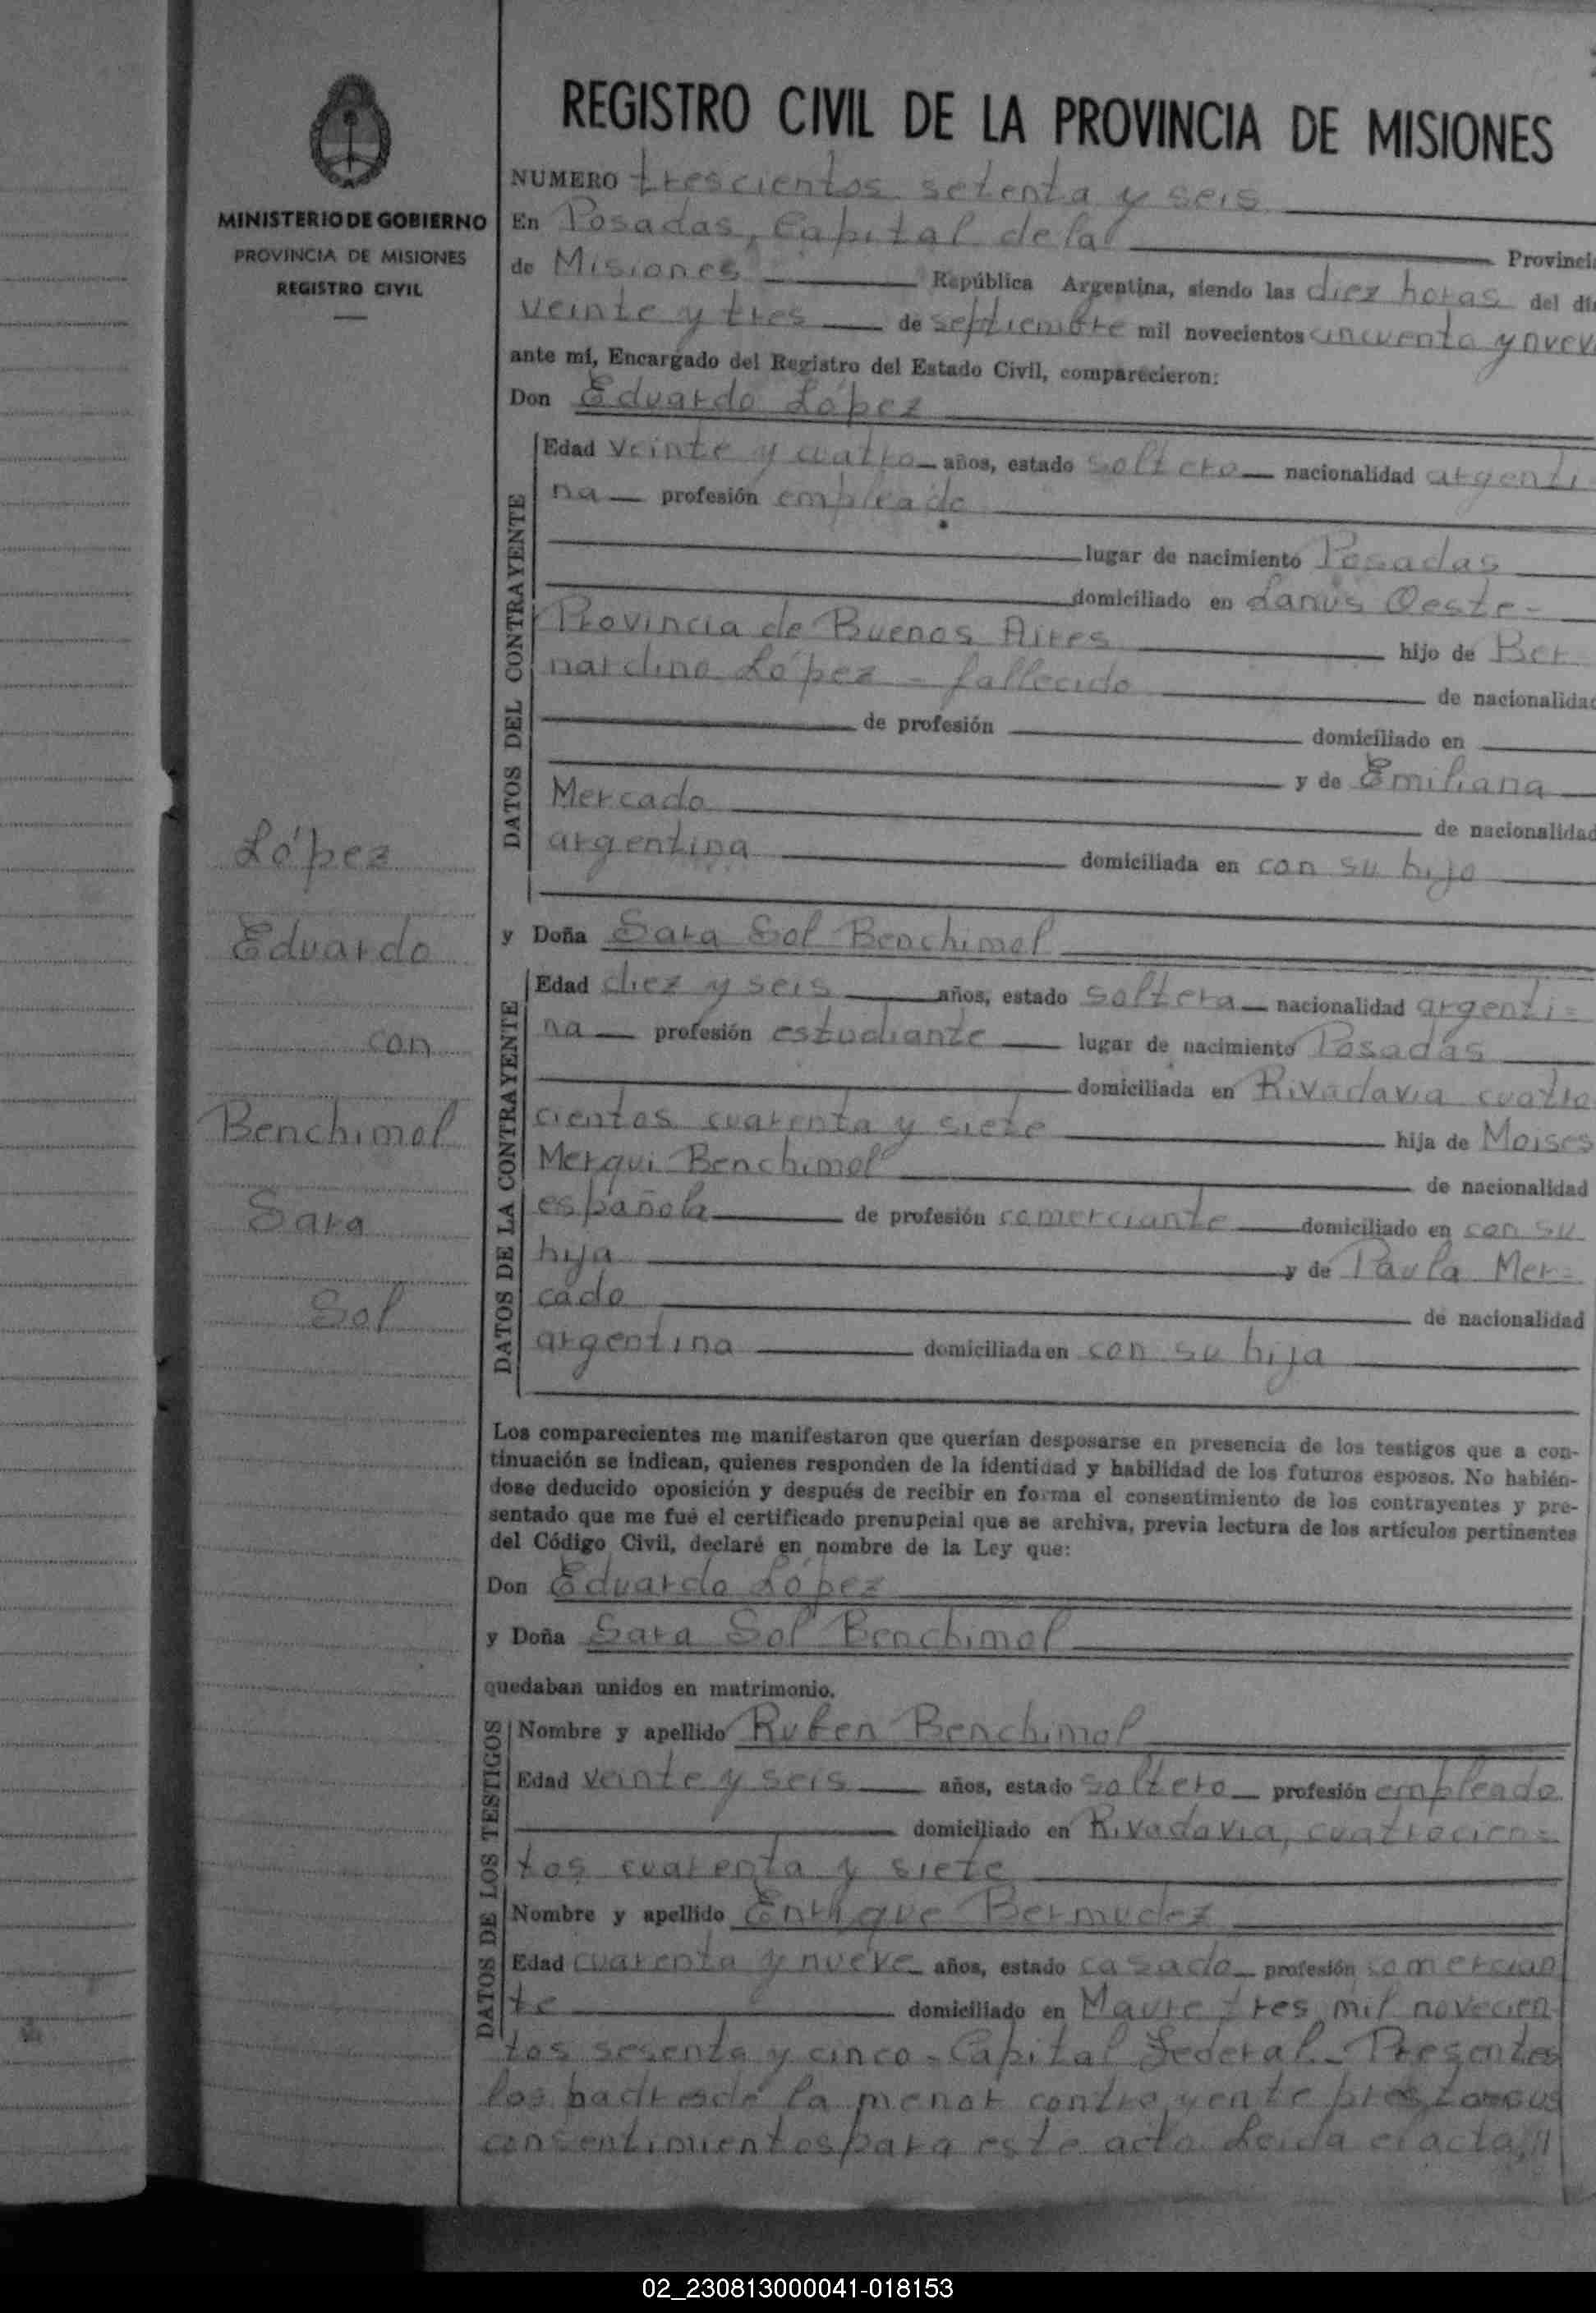 MINISTERIO DE GOBIERNO
PROVINCIA DE MISIONES
REGISTRO CIVIL
López
Eduardo
con
Benchimol
Sara
Sol
REGISTRO CIVIL DE LA PROVINCIA DE MISIONES
NUMERO trescientos setenta y seis
En Posadas, Capital de la Provinci
de Misiones República Argentina, siendo las diez horas del dí
veinte y tres de septiembre mil novecientos cincuenta y nuev
ante mí, Encargado del Registro del Estado Civil, comparecieron:
Don Eduardo López
DATOS DEL CONTRAYENTE
Edad veinte y cuatro años, estado soltero nacionalidad argenti
na profesión empleado
lugar de nacimiento Posadas
domiciliado en Lanús Oeste-
Provincia de Buenos Aires hijo de Ber
nardino López - fallecido de nacionalidad
de profesión domiciliado en
y de Emiliana
Mercado de nacionalidad
argentina domiciliada en con su hijo
y Doña Sara Sol Benchimol
DATOS DE LA CONTRAYENTE
Edad diez y seis años, estado soltera nacionalidad argenti=
na profesión estudiante lugar de nacimiento Posadas
domiciliada en Rivadavia cuatro
cientos cuarenta y siete hija de Moises
Merqui Benchimol de nacionalidad
española de profesión comerciante domiciliado en con su
hija y de Paula Mer=
cado de nacionalidad
argentina domiciliada en con su hija
Los comparecientes me manifestaron que querían desposarse en presencia de los testigos que a con-
tinuación se indican, quienes responden de la identidad y habilidad de los futuros esposos. No habién-
dose deducido oposición y después de recibir en forma el consentimiento de los contrayentes y pre-
sentado que me fué el certificado prenupcial que se archiva, previa lectura de los artículos pertinentes
del Código Civil, declaré en nombre de la Ley que:
Don Eduardo López
y Doña Sara Sol Benchimol
quedaban unidos en matrimonio.
DATOS DE LOS TESTIGOS
Nombre y apellido Ruben Benchimol
Edad veinte y seis años, estado soltero profesión empleado
domiciliado en Rivadavia, cuatrocien=
tos cuarenta y siete
Nombre y apellido Enrique Bermudez
Edad cuarenta y nueve años, estado casado profesión comercian
te domiciliado en Maure tres mil novecien
tos sesenta y cinco - Capital Federal - Presentes
los padres de la menor contrayente prestan sus
consentimientos para este acto. Leida el acta, //
02_230813000041-018153